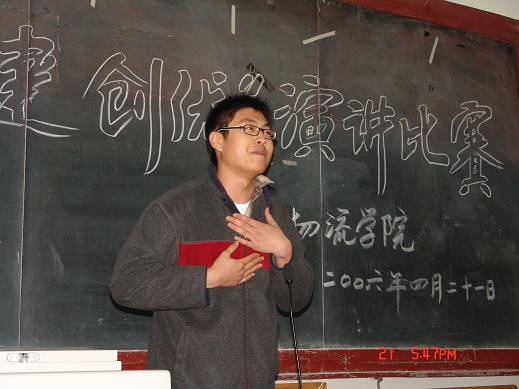 建 创优 演讲比赛
物流学院
二〇〇六年四月二十一日
21 5:47PM